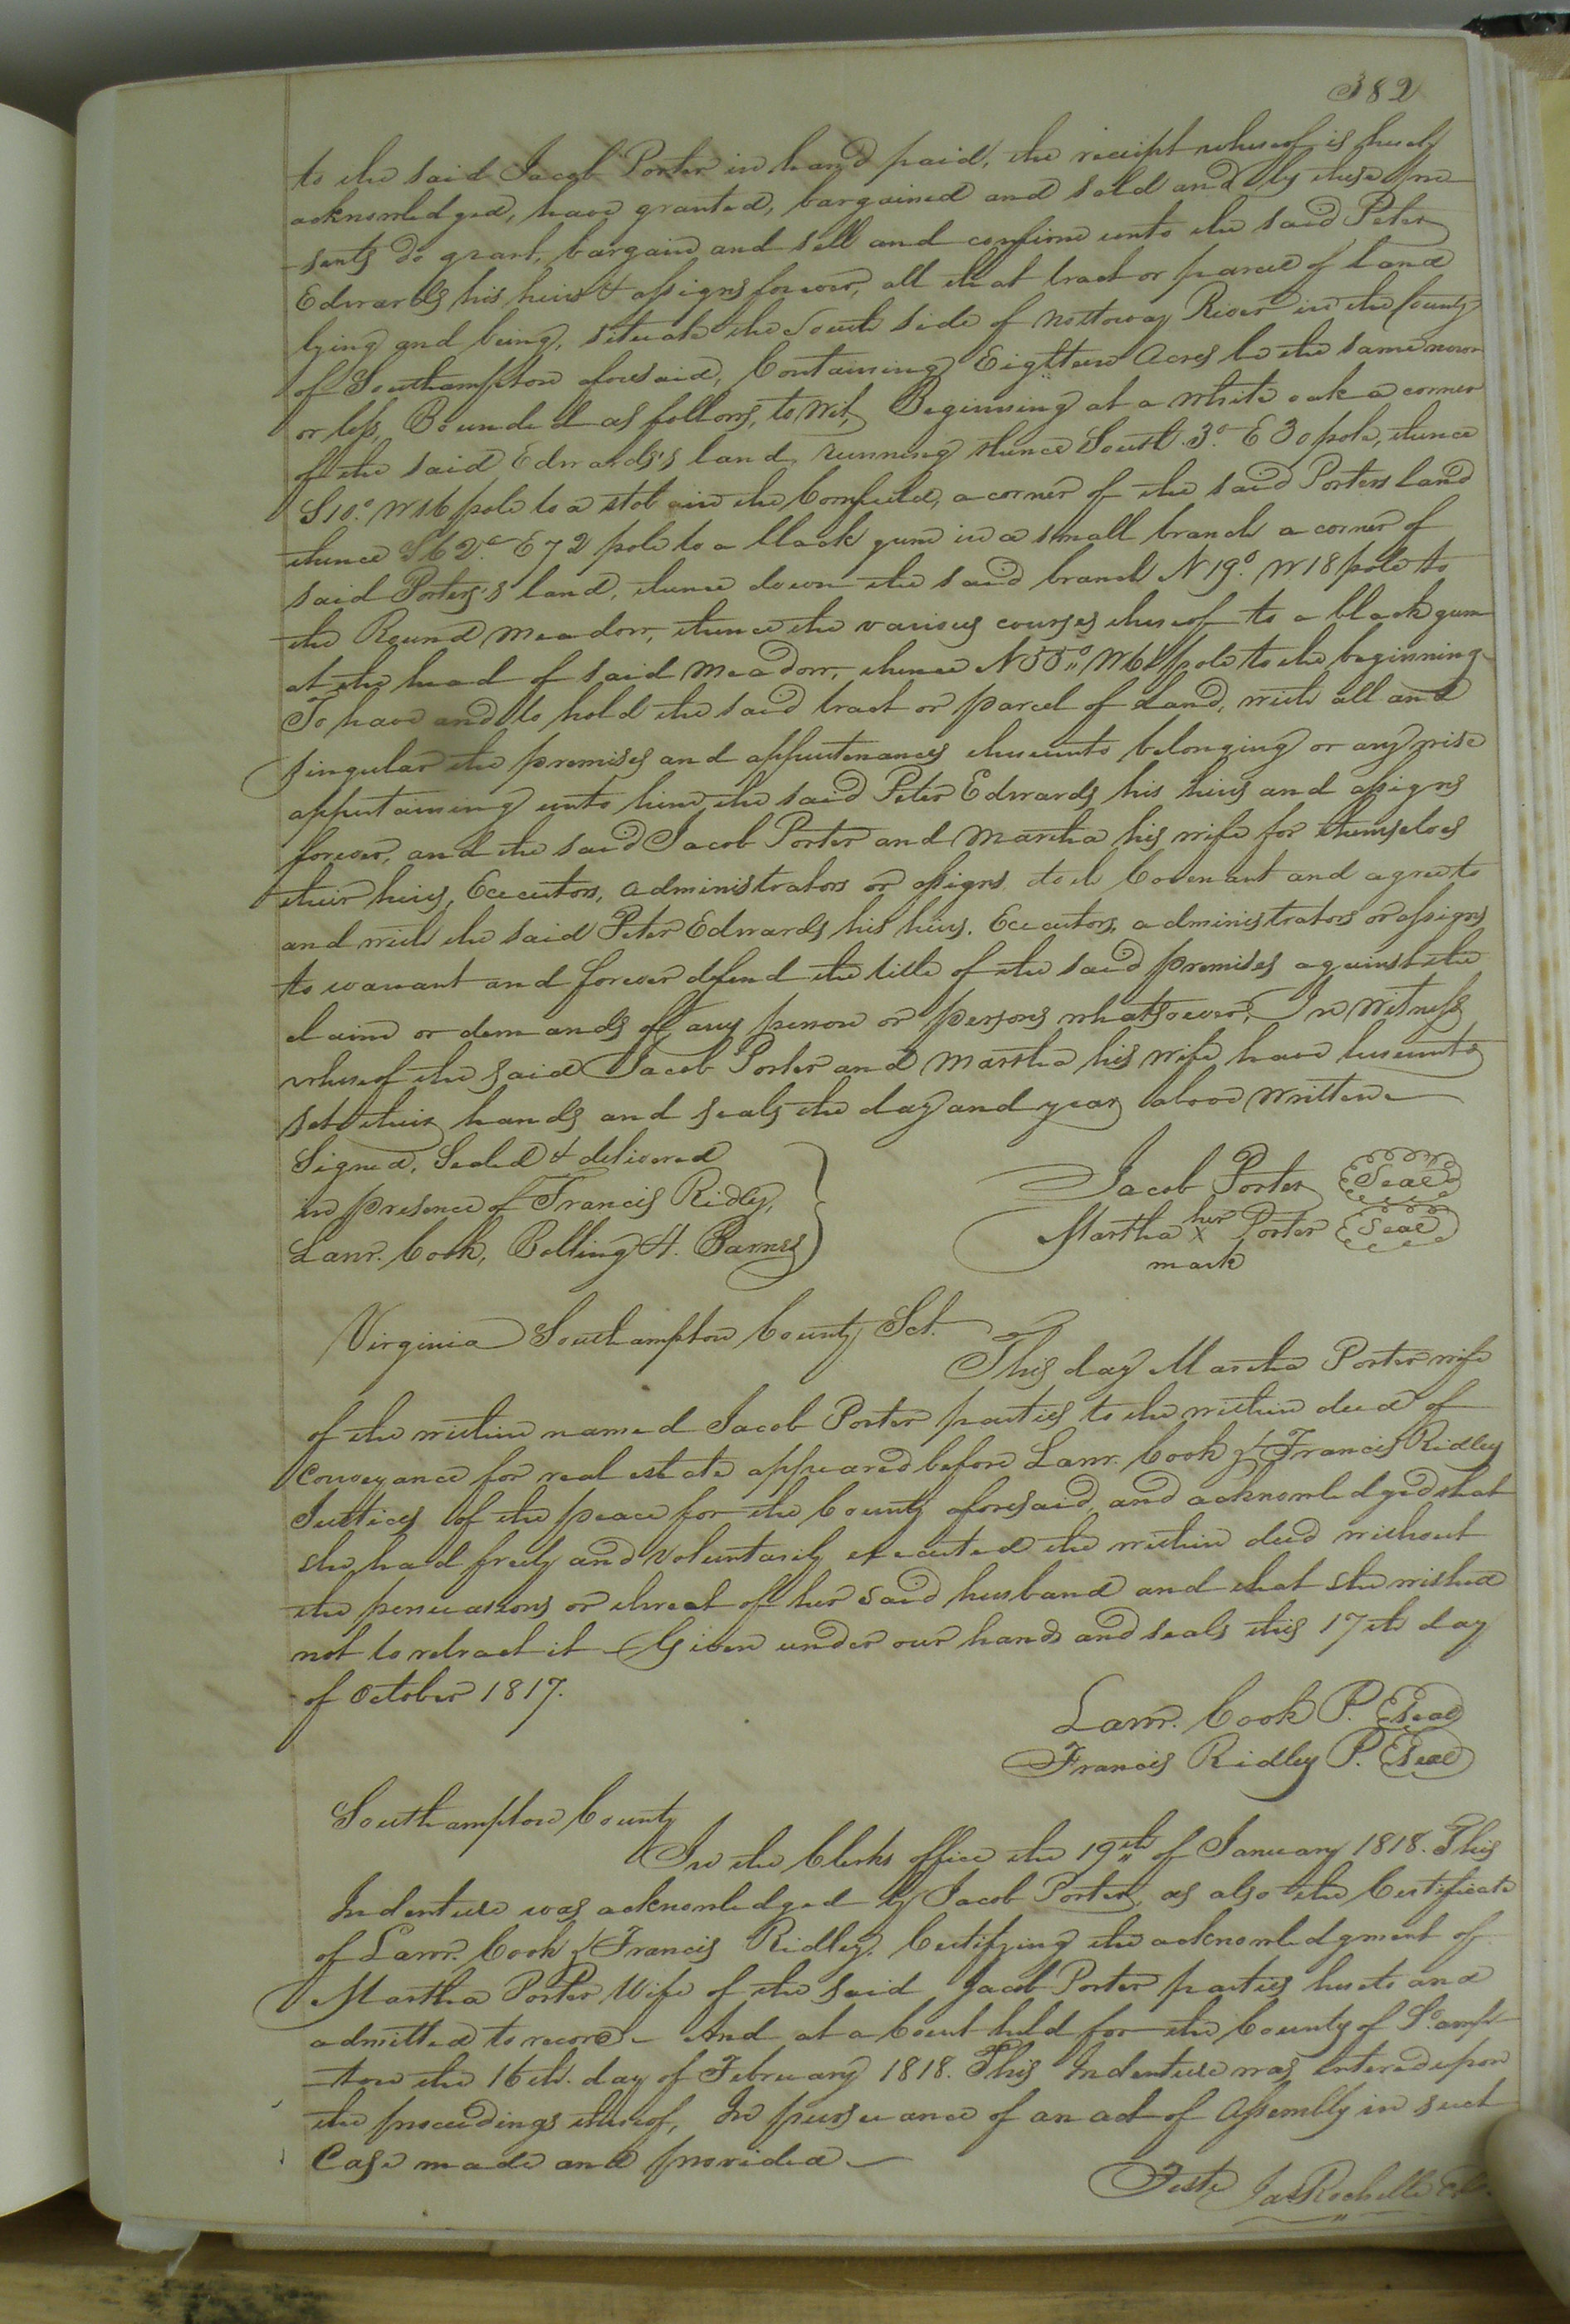 382
to the said Jacob Porter in hand paid, the receipt whereof is hereby
acknowledged, have granted, bargained and sold and by these pre
-sents do grant, bargain and sell and confirm unto the said Peter
Edwards his heirs & assigns forever, all that tract or parcel of land
lying and being, situate the South side of Nottoway River in the County
of Southampton aforesaid, Containing Eighteen Acres be the same more
or less, Bounded as follows, to wit, Beginning at a white oak a corner
of the said Edwards's land, running thence South 3° E 30 pole, thence
S 10° W 16 pole to a stob in the Cornfield, a corner of the said Porters land
thence S 62° E 72 pole to a black gum in a small branch a corner of
said Porters's land, thence down the said branch N 19° W 18 pole to
the Round meadow, thence the various courses thereof to a black gum
at the head of said meadow, thence N 55° W pole to the beginning
To have and to hold the said tract or parcel of Land, with all and
singular the premises and appurtenances thereunto belonging or anywise
appertaining unto him the said Peter Edwards his heirs and assigns
forever, and the said Jacob Porter and Martha his wife for themselves
their heirs, Executors, administrators or assigns doth Covenant and agree to
and with the said Peter Edwards his heirs, Executors, administrators or assigns
to warrant and forever defend the title of the said premises against the
claim or demands of any person or persons whatsoever, In Witness
whereof the said Jacob Porter and Martha his wife have hereunto
set their hands and seals the day and year above written
Signed, Sealed & delivered
in presence of Francis Ridley,
Lawr. Cook, Bolling H. Barnes
Jacob Porter Seal
Martha her x Porter Seal
mark
Virginia Southampton County Sct.
This day Martha Porter wife
of the within named Jacob Porter parties to the within deed of
Conveyance for real estate appeared before Lawr. Cook & Francis Ridley
Justices of the peace for the County aforesaid, and acknowledged that
she had freely and voluntarily executed the within deed without
the persuasions or threat of her said husband and that she wished
not to retract it Given under our hands and seals this 17th day
of October 1817.
Lawr. Cook P. Seal
Francis Ridley P. Seal
Southampton County
In the Clerks office the 19th of January 1818. This
Indenture was acknowledged by Jacob Porter, as also the Certificate
of Lawr. Cook & Francis Ridley, Certifying the acknowledgment of
Martha Porter Wife of the said Jacob Porter parties hereto and
admitted to record - And at a Court held for the County of So. amp
-ton the 16th. day of February 1818. This Indenture was Entered upon
the proceedings thereof, In pursuance of an act of Assembly in such
Case made and provided
Teste Jas Rochelle